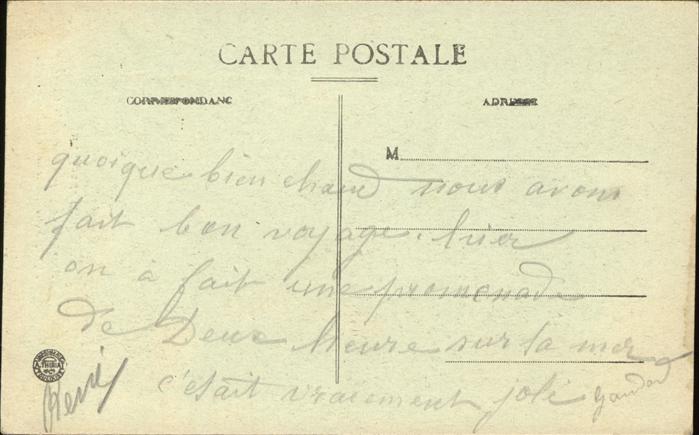 CARTE POSTALE
CORRESPONDANCE
ADRESSE
M
quoique bien chaud nous avons
fait bon voyage. hier
on à fait une promenade
de Deux heure sur la mer
c'était vraiement joli